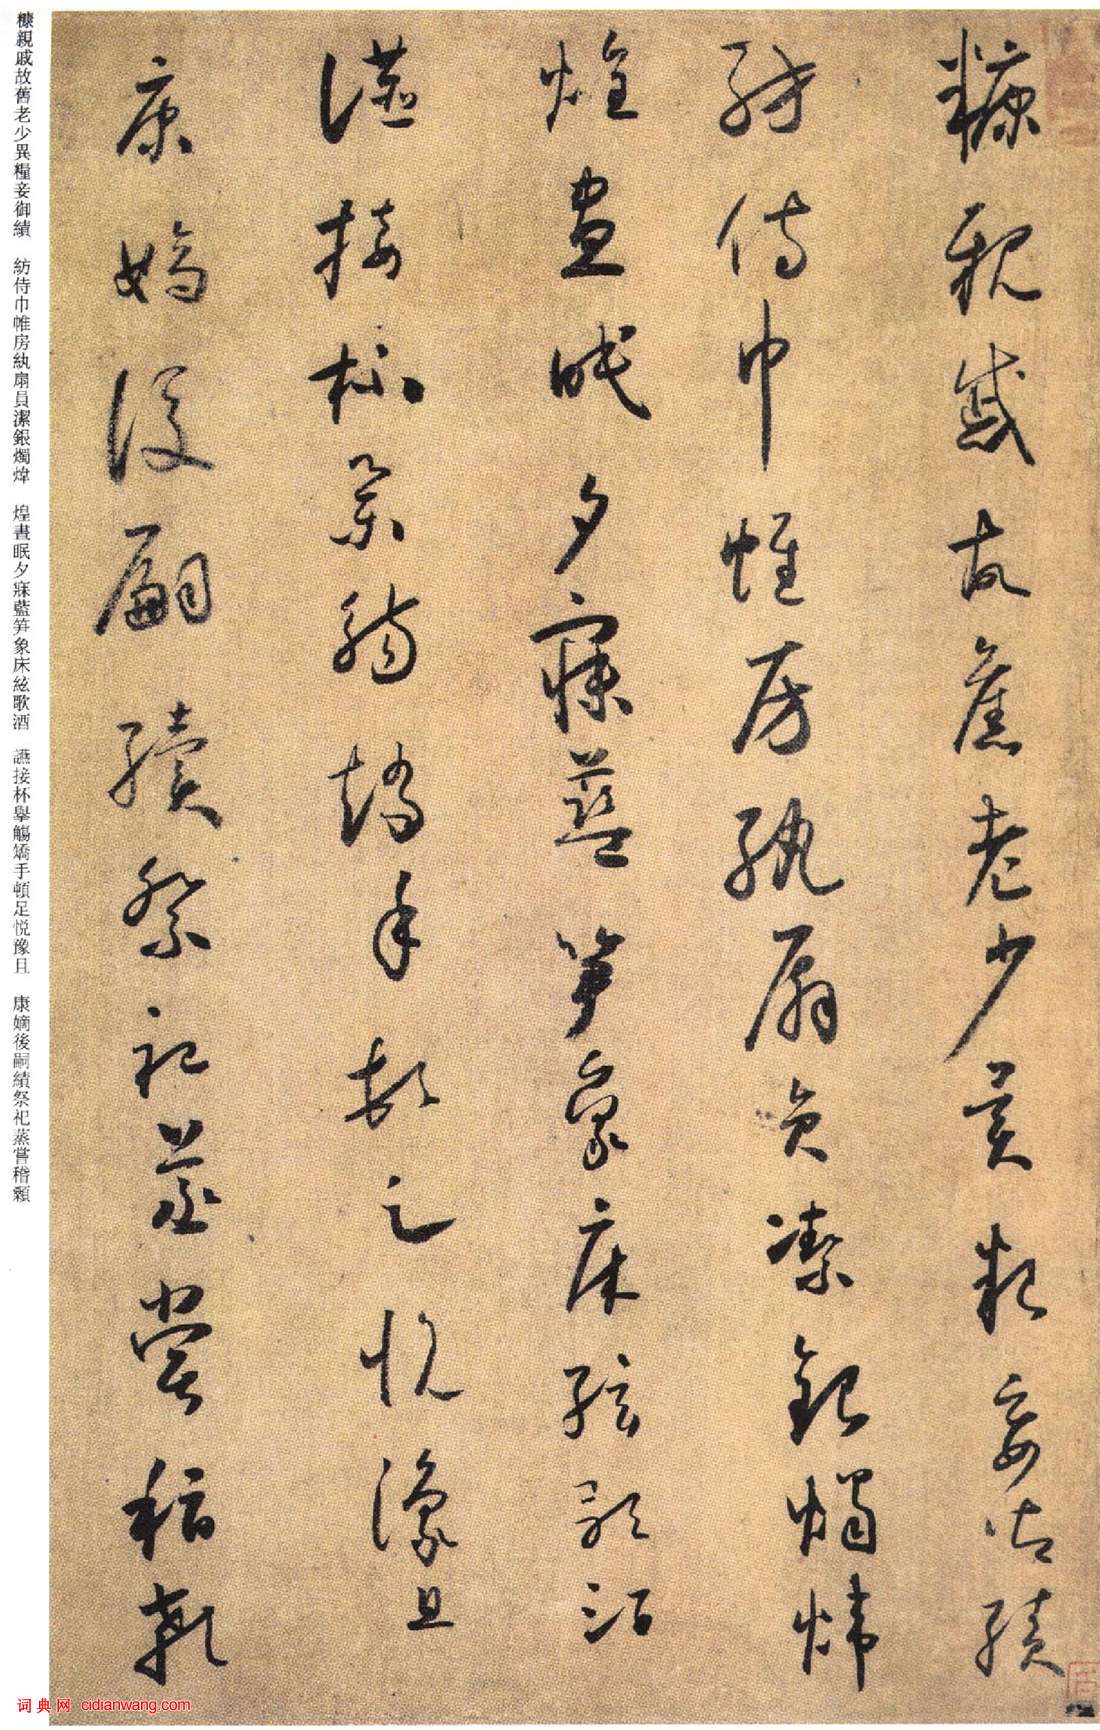 糠親戚故舊老少異糧妾御績
紡侍巾帷房紈扇員潔銀燭煒
煌晝眠夕寐藍笋象床絃歌酒
讌接杯舉觴矯手頓足悦豫且
康嫡後嗣續祭祀蒸嘗稽顙
糠親戚故舊老少異糧妾御績 紡侍巾帷房紈扇員潔銀燭煒 煌晝眠夕寐藍笋象床絃歌酒 讌接杯舉觴矯手頓足悦豫且 康嫡後嗣績祭祀蒸嘗稽顙
词典网 cidianwang.com